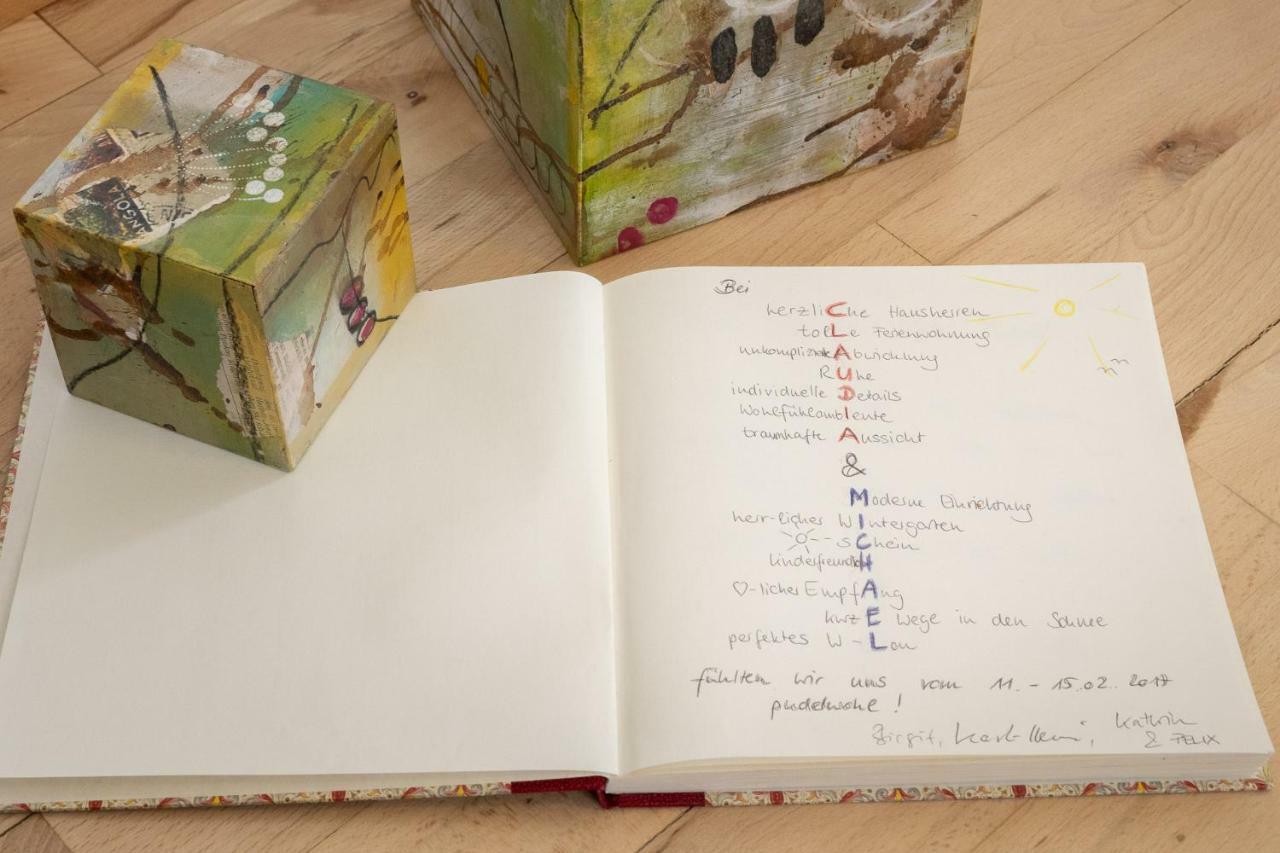 Bei
herzliChe Hausherren
tolLe Ferienwohnung
unkomplizierte Abwicklung
RUhe
individuelle Details
WohlfühlambIente
traumhafte Aussicht
&
Moderne Einrichtung
herr-licher WIntergarten
-sChein
kinderfreundlicH
♡-licher EmpfAng
kurzE Wege in den Schnee
perfektes W-Lan
fühlten wir uns vom 11. - 15.02. 2017
pudelwohl !
Birgit, Karl-Heinz, Kathrin
& FELIX